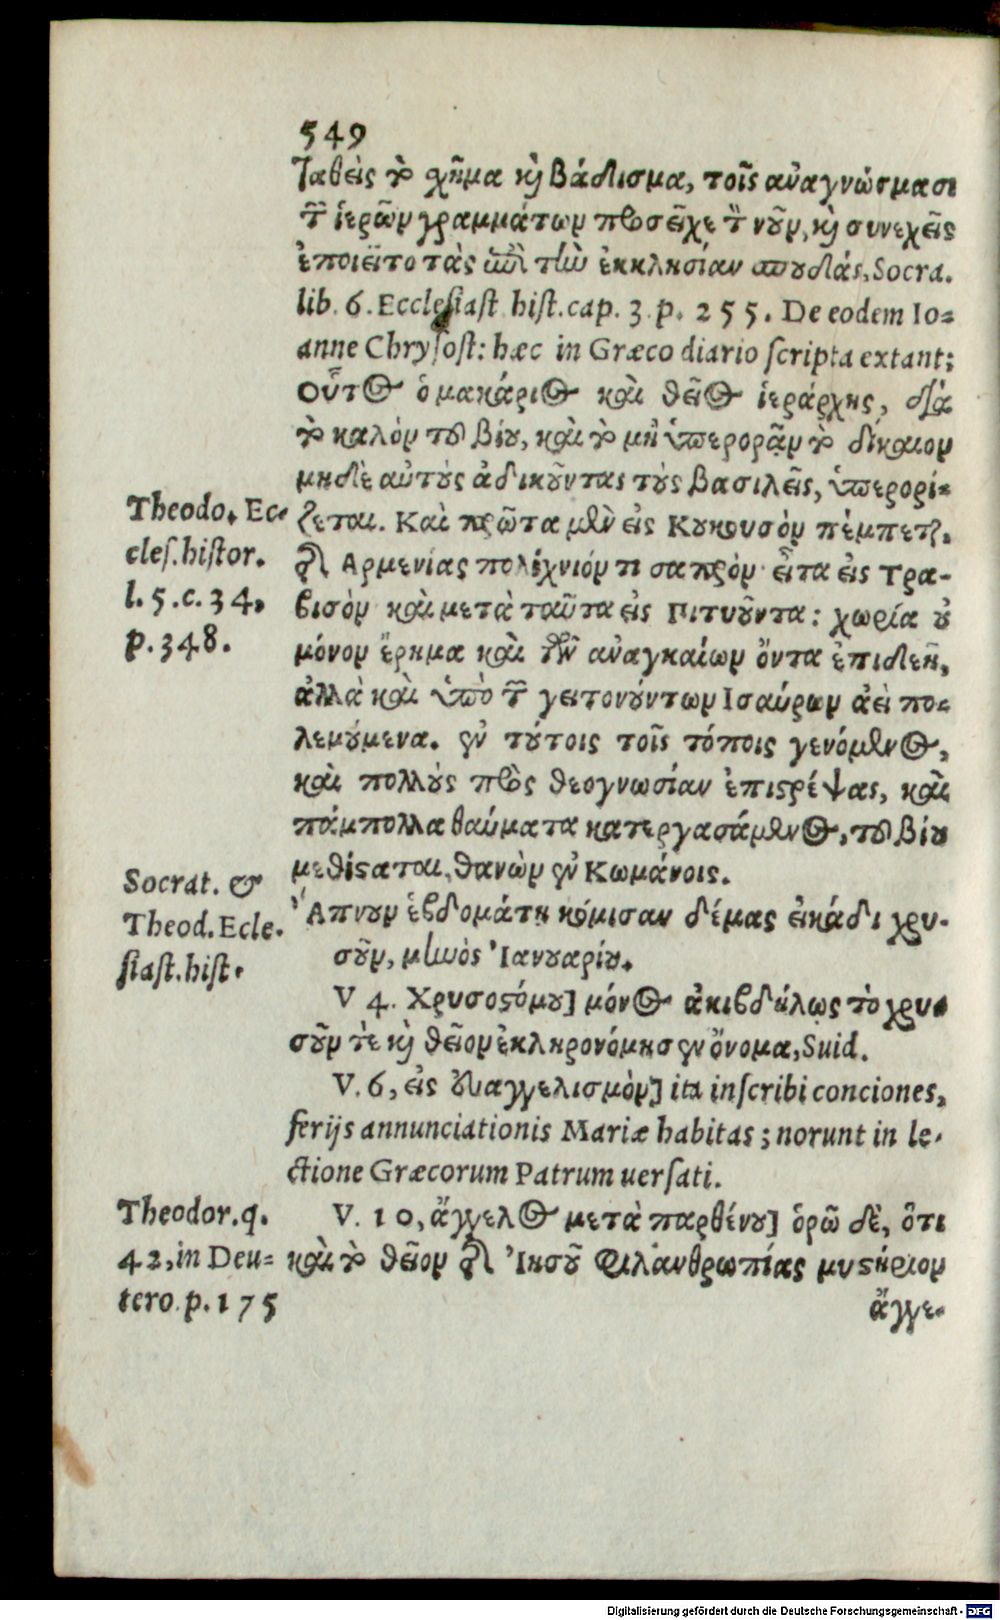 549
ταθεὶς τὸ χῆμα κὶ βάδισμα, τοῖς αὐαγνώσμασι
τῶ ἱερῶν γραμμάτων προσεῖχε τ νοῦν, κὶ συνεχεῖς
ἐποιεῖτο τὰς ἐπὶ τὴν ἐκκλησίαν σπουδάς, Socra.
lib. 6. Ecclesiast hist. cap. 3. p. 255. De eodem Io=
anne Chrysost: hæc in Græco diario scripta extant;
Οὗτος ὁ μακάριος καὶ θεῖος ἱεράρχης, διὰ
τὸ καλὸν τοῦ βίου, καὶ τὸ μὴ ὑπερορᾷν τὸ δίκαιον
μηδὲ αὐτοὺς ἀδικοῦντας τοὺς βασιλεῖς, ὑπερορί=
Theodo. Ec=
ζεται. Καὶ πρῶτα μὲν εἰς Κουκουσὸν πέμπεται,
cles. histor.
τῆς Αρμενίας πολίχνιόν τι σαπρὸν· εἶτα εἰς Τρα-
l. 5. c. 34,
βισὸν καὶ μετὰ ταῦτα εἰς Πιτυοῦντα: χωρία οὐ
p. 348.
μόνον ἔρημα καὶ τῶν αὐαγκαίων ὄντα ἐπιδεῆ,
ἀλλὰ καὶ ὑπὸ τῶ γειτονούντων Ισαύρων ἀεὶ πο=
λεμούμενα. ἐν τούτοις τοῖς τόποις γενόμενος,
καὶ πολλοὺς πρὸς θεογνωσίαν ἐπιστρέψας, καὶ
πάμπολλα θαύματα κατεργασάμενος, τοῦ βίου
Socrat. &
μεθίσταται, θανὼν ἐν Κωμάνοις.
Theod. Ecle.
Ἄπνουν ἑβδομάτῃ κόμισαν δέμας εἰκάδι χρυ-
siast. hist.
σοῦν, μηνὸς Ἰανουαρίου.
V 4. Χρυσοστόμου] μόνος ἀκιβδήλως τὸ χρυ=
σοῦν τὲ κὶ θεῖον ἐκληρονόμησεν ὄνομα, Suid.
V. 6, εἰς εὐαγγελισμὸν] ita inscribi conciones,
ferijs annunciationis Mariæ habitas; norunt in le-
ctione Græcorum Patrum uersati.
Theodor. q.
V. 10, ἄγγελος μετὰ παρθένου] ὁρῶ δὲ, ὅτι
42, in Deu=
καὶ τὸ θεῖον τῆς Ἰησοῦ φιλανθρωπίας μυστήριον
tero. p. 175
ἄγγε-
Digitalisierung gefördert durch die Deutsche Forschungsgemeinschaft - DFG